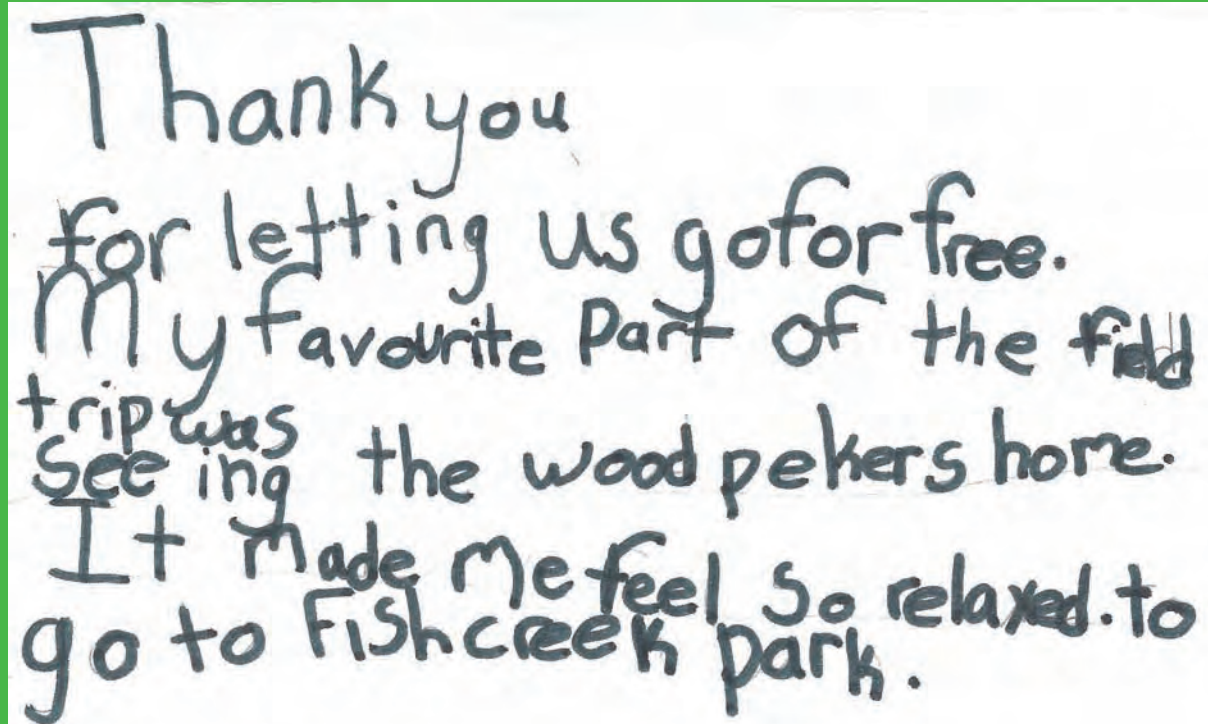 Thank you
for letting us go for free.
My favourite part of the field
trip was
seeing the wood pekers home.
It made me feel so relaxed. to
go to Fishcreek park.